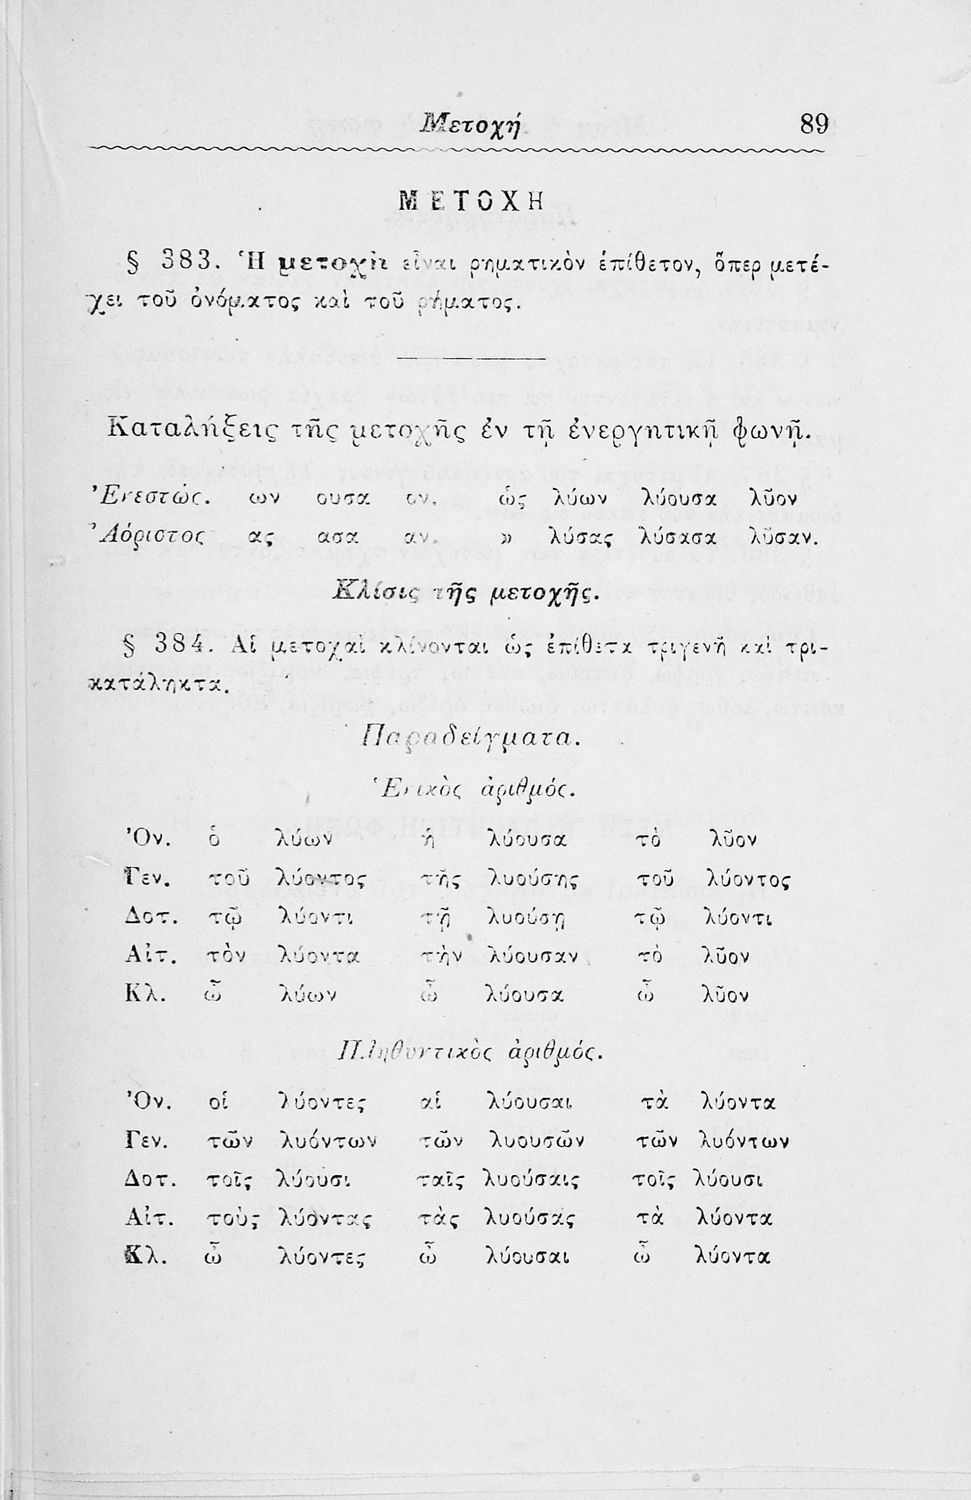 Μετοχή 89
ΜΕΤΟΧΗ
§ 383. Ἡ μετοχὴ εἶναι ρηματικὸν ἐπίθετον, ὅπερ μετέ-
χει τοῦ ὀνόματος καὶ τοῦ ρήματος.
Καταλήξεις τῆς μετοχῆς ἐν τῇ ἐνεργητικῇ φωνῇ.
Ἐνεστώς. ων ουσα ον. ὡς λύων λύουσα λῦον
Ἀόριστος ας ασα αν. » λύσας λύσασα λῦσαν.
Κλίσις τῆς μετοχῆς.
§ 384. Αἱ μετοχαὶ κλίνονται ὡς ἐπίθετα τριγενῆ καὶ τρι-
κατάληκτα.
Παραδείγματα.
Ἑνικὸς ἀριθμός.
Ὀν. ὁ λύων ἡ λύουσα τὸ λῦον
Γεν. τοῦ λύοντος τῆς λυούσης τοῦ λύοντος
Δοτ. τῷ λύοντι τῇ λυούσῃ τῷ λύοντι
Αἰτ. τὸν λύοντα τὴν λύουσαν τὸ λῦον
Κλ. ὦ λύων ὦ λύουσα ὦ λῦον
Πληθυντικὸς ἀριθμός.
Ὀν. οἱ λύοντες αἱ λύουσαι τὰ λύοντα
Γεν. τῶν λυόντων τῶν λυουσῶν τῶν λυόντων
Δοτ. τοῖς λύουσι ταῖς λυούσαις τοῖς λύουσι
Αἰτ. τοὺς λύοντας τὰς λυούσας τὰ λύοντα
Κλ. ὦ λύοντες ὦ λύουσαι ὦ λύοντα